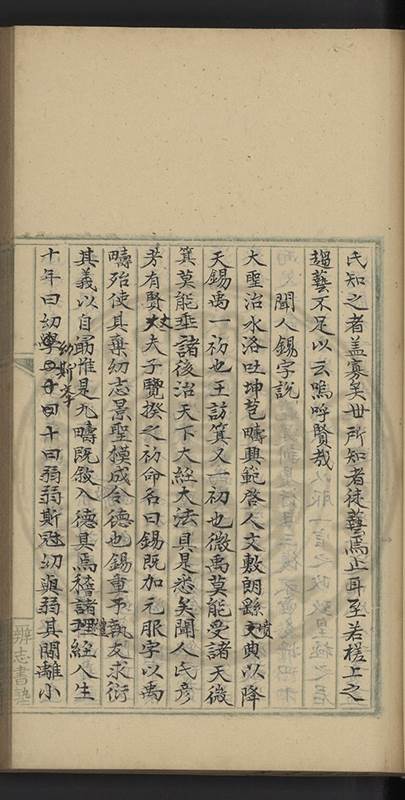 氏知之者盖寡矣世所知者徒藝焉止耳至若槎上之
趨藝不足以云嗚呼賢哉
聞人錫字說
大聖治水洛吐坤苞疇興範啓人文敷朗繇墳典以降
天錫禹一初也王訪箕又一初也微禹莫能受諸天微
箕莫能垂諸後治天下大經大法具是悉矣聞人氏彥
芳有賢丈夫子覽揆之初命名曰錫既加元服字以禹
疇殆使其棄幼志景聖模成令德也錫重予執友求衍
其義以自勗惟是九疇既敘入德具焉稽諸禮經人生
十年曰幼學幼斯學二十曰弱弱斯冠幼與弱其閒離小
辨志書塾